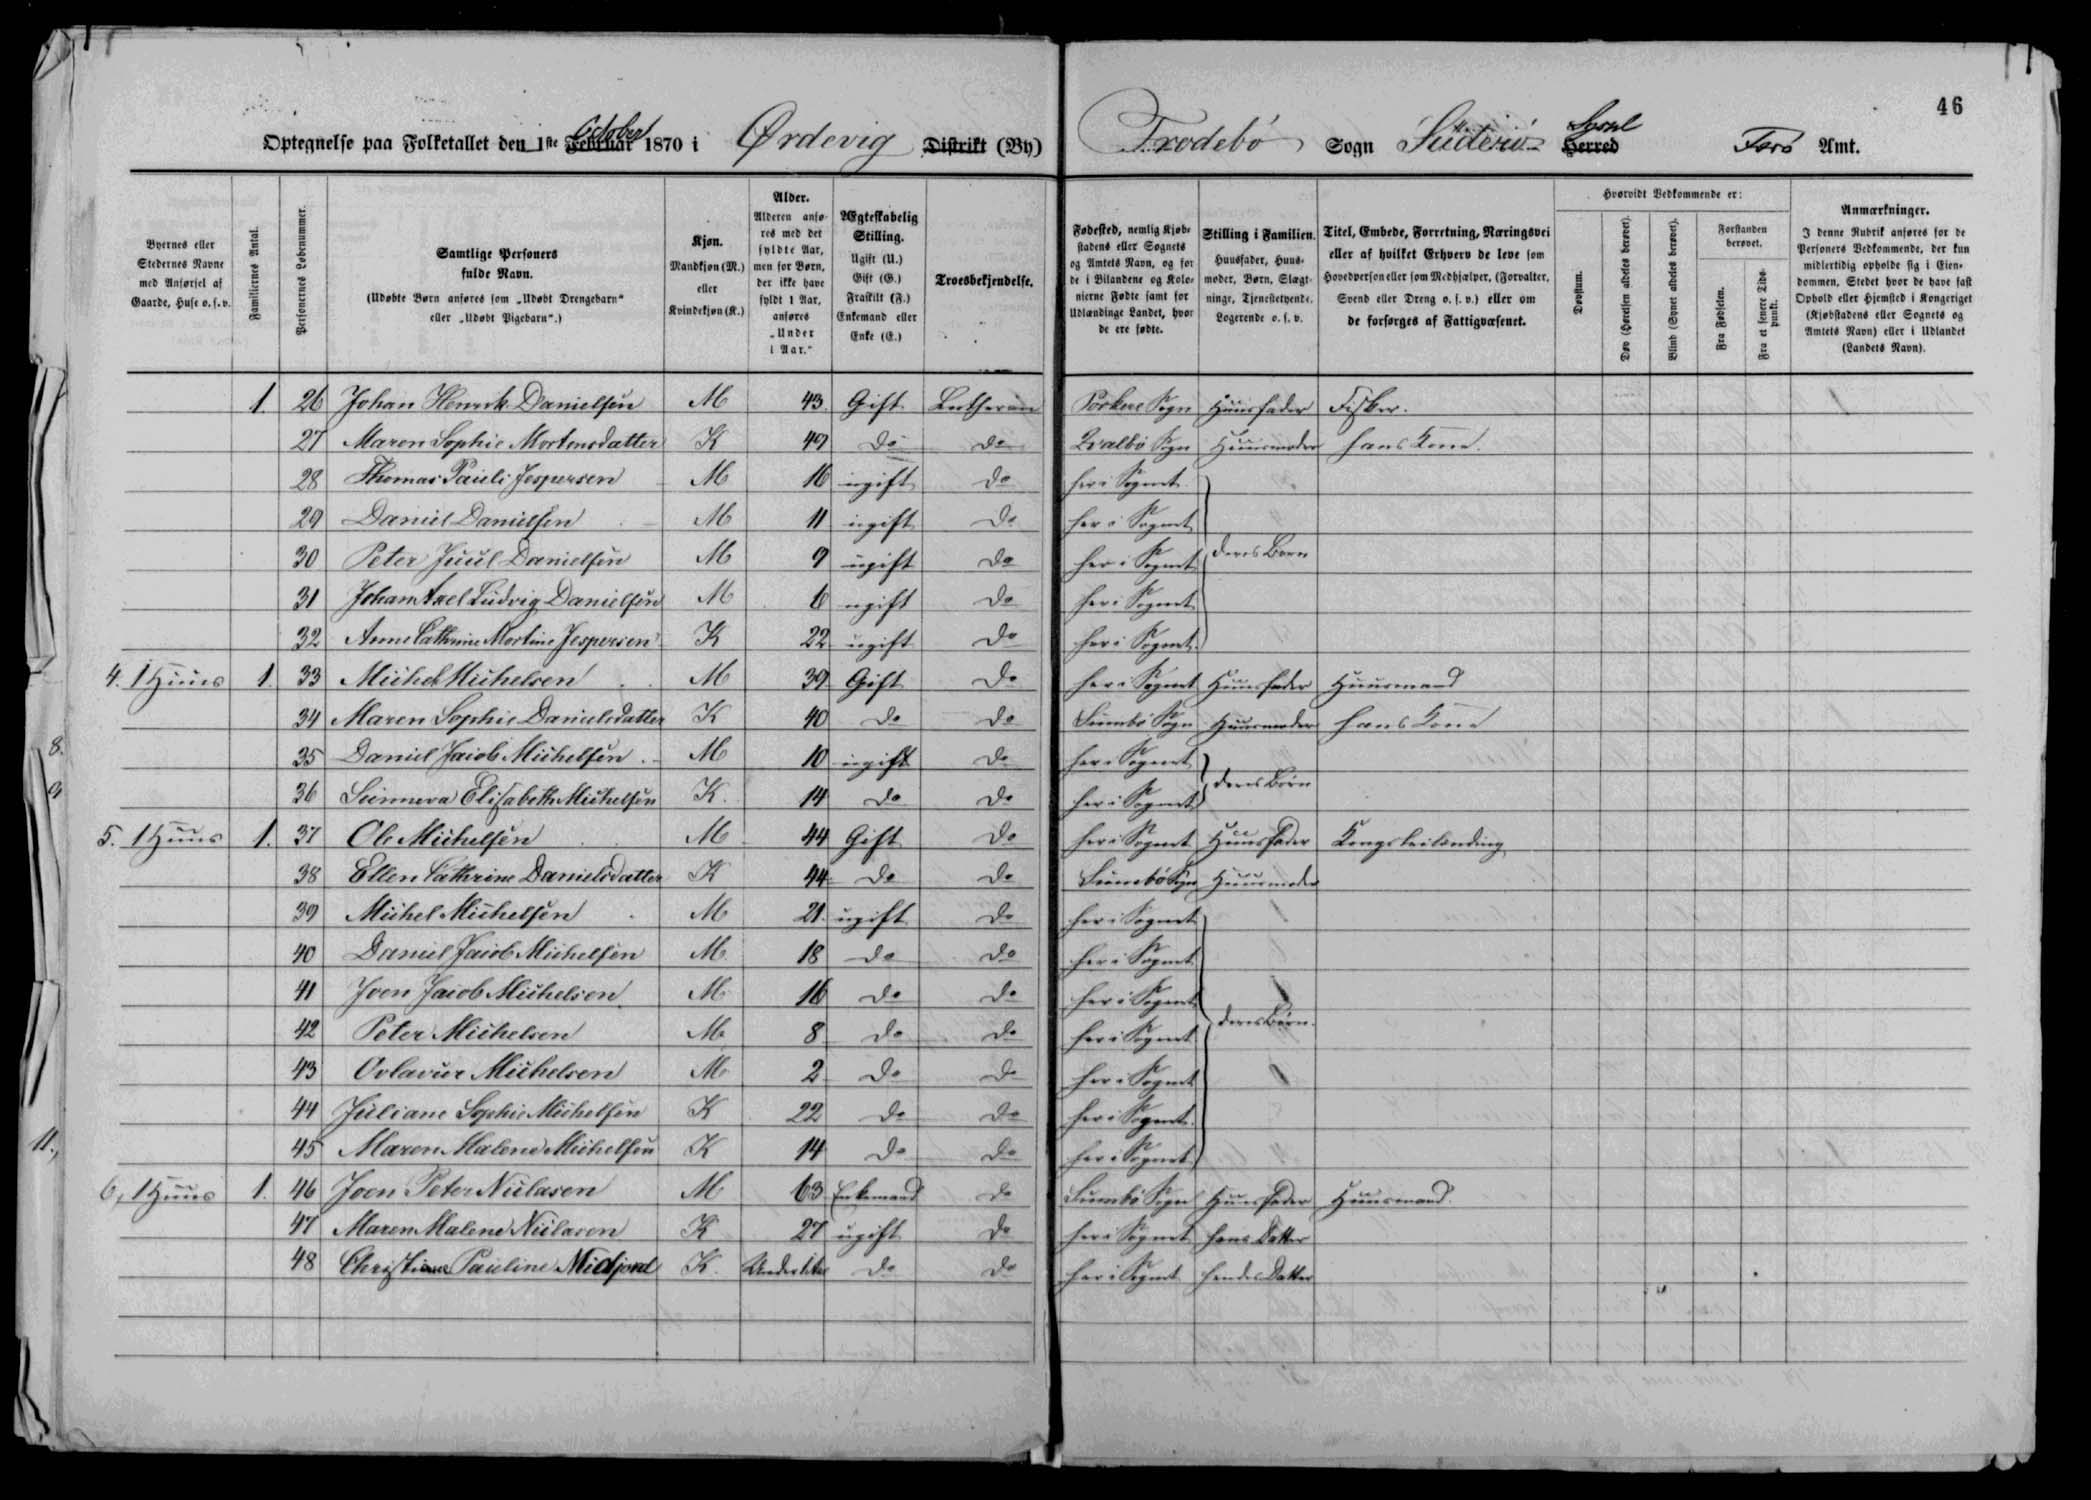 46
Optegnelse paa Folketallet den 1ste October Februar 1870 i Ørdevig Distrikt (By) Frodebø Sogn Süderö Syssel Herred Færö Amt.
Byernes eller Stedernes Navne med Anførsel af Gaarde, Huse o.s.v.
Familiernes Antal.
Personernes Løbenummer.
Samtlige Personers fulde Navn. (Udøbte Børn anføres som „Udøbt Drengebarn“ eller „Udøbt Pigebarn“.)
Kjøn. Mandkjøn (M.) eller Kvindekjøn (K.)
Alder. Alderen anføres med det fyldte Aar, men for Børn, der ikke have fyldt 1 Aar, anføres „Under 1 Aar.“
Ægteskabelig Stilling. Ugift (U.) Gift (G.) Fraskilt (F.) Enkemand eller Enke (E.)
Troesbekjendelse.
Fødested, nemlig Kjøbstadens eller Sognets og Amtets Navn, og for de i Bilandene og Kolonierne Fødte samt for Udlændinge Landet, hvor de ere fødte.
Stilling i Familien. Huusfader, Huusmoder, Børn, Slægtninge, Tjenestetyende, Logerende o.s.v.
Titel, Embede, Forretning, Næringsvei eller af hvilket Erhverv de leve som Hovedperson eller som Medhjælper, (Forvalter, Svend eller Dreng o.s.v.) eller om de forsørges af Fattigvæsenet.
Hvorvidt Vedkommende er:
Døvstum.
Døv (Hørelsen aldeles berøvet).
Blind (Synet aldeles berøvet).
Forstanden berøvet.
Fra Fødselen.
Fra et senere Tidspunkt.
Anmærkninger. I denne Rubrik anføres for de Personers Vedkommende, der kun midlertidig opholde sig i Eiendommen, Stedet hvor de have fast Ophold eller Hjemsted i Kongeriget (Kjøbstadens eller Sognets og Amtets Navn) eller i Udlandet (Landets Navn).
1. 26 Johan Henrik Danielsen M 43 Gift Lutheran Porkere Sogn Huusfader Fisker.
27 Maren Sophie Mortensdatter K 49 do do Qvalbø Sogn Huusmoder hans Kone.
28 Thomas Pauli Jespersen M 16 ugift do her i Sognet
29 Daniel Danielsen M 11 ugift do her i Sognet
30 Peter Juul Danielsen M 9 ugift do her i Sognet deres Børn
31 Johan Axel Ludvig Danielsen M 6 ugift do her i Sognet
32 Anne Cathrine Mortine Jespersen K 22 ugift do her i Sognet
4. 1 Huus 1. 33 Michel Michelsen M 39 Gift do her i Sognet Huusfader Huusmand
34 Maren Sophie Danielsdatter K 40 do do Sumbø Sogn Huusmoder hans Kone
35 Daniel Jacob Michelsen M 10 ugift do her i Sognet
36 Sunneva Elisabeth Michelsen K. 14 do do her i Sognet deres Børn
5. 1 Huus 1. 37 Ole Michelsen M 44 Gift do her i Sognet Huusfader Kongsleilending
38 Ellen Cathrine Danielsdatter K 44 do do Sumbø Sogn Huusmoder
39 Michel Michelsen M 21 ugift do her i Sognet
40 Daniel Jacob Michelsen M 18 do do her i Sognet
41 Joen Jacob Michelsen M 16 do do her i Sognet
42 Peter Michelsen M 8 do do her i Sognet deres Børn.
43 Ovlavur Michelsen M 2 do do her i Sognet
44 Juliane Sophie Michelsen K 22 do do her i Sognet
45 Maren Malene Michelsen K 14 do do her i Sognet
6, 1 Huus 1. 46 Joen Peter Niclasen M 63 Enkemand do Sumbø Sogn Huusfader Huusmand.
47 Maren Malene Niclasen K 27 ugift do her i Sognet hans Datter
48 Christiane Pauline Midjord K. Under 1 Aar do do her i Sognet hendes Datter
8.
9
11.,